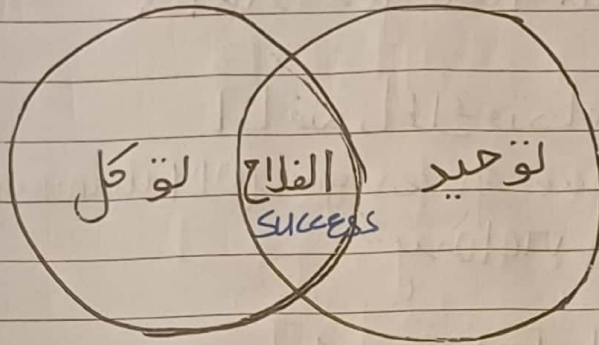 توحيد
الفلاح
SUCCESS
توكل